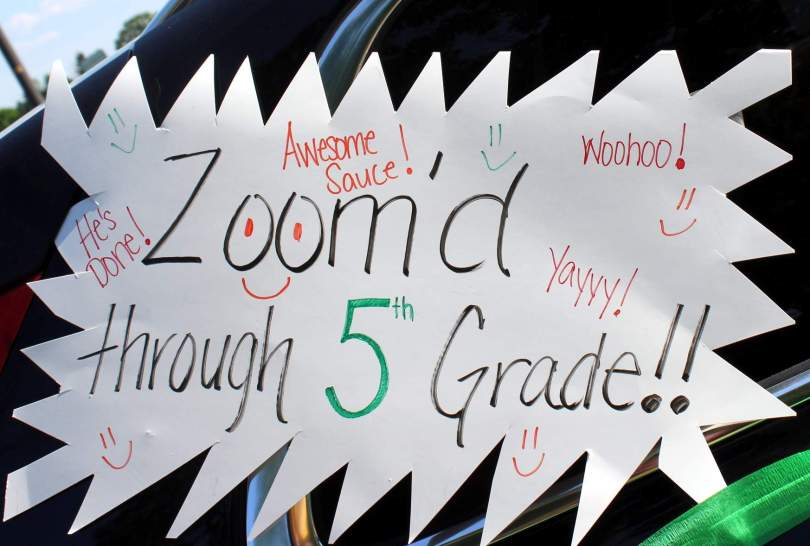 Awesome
Sauce!
Woohoo!
He's
Done!
Zoom'd
Yayyy!
through 5th Grade!!